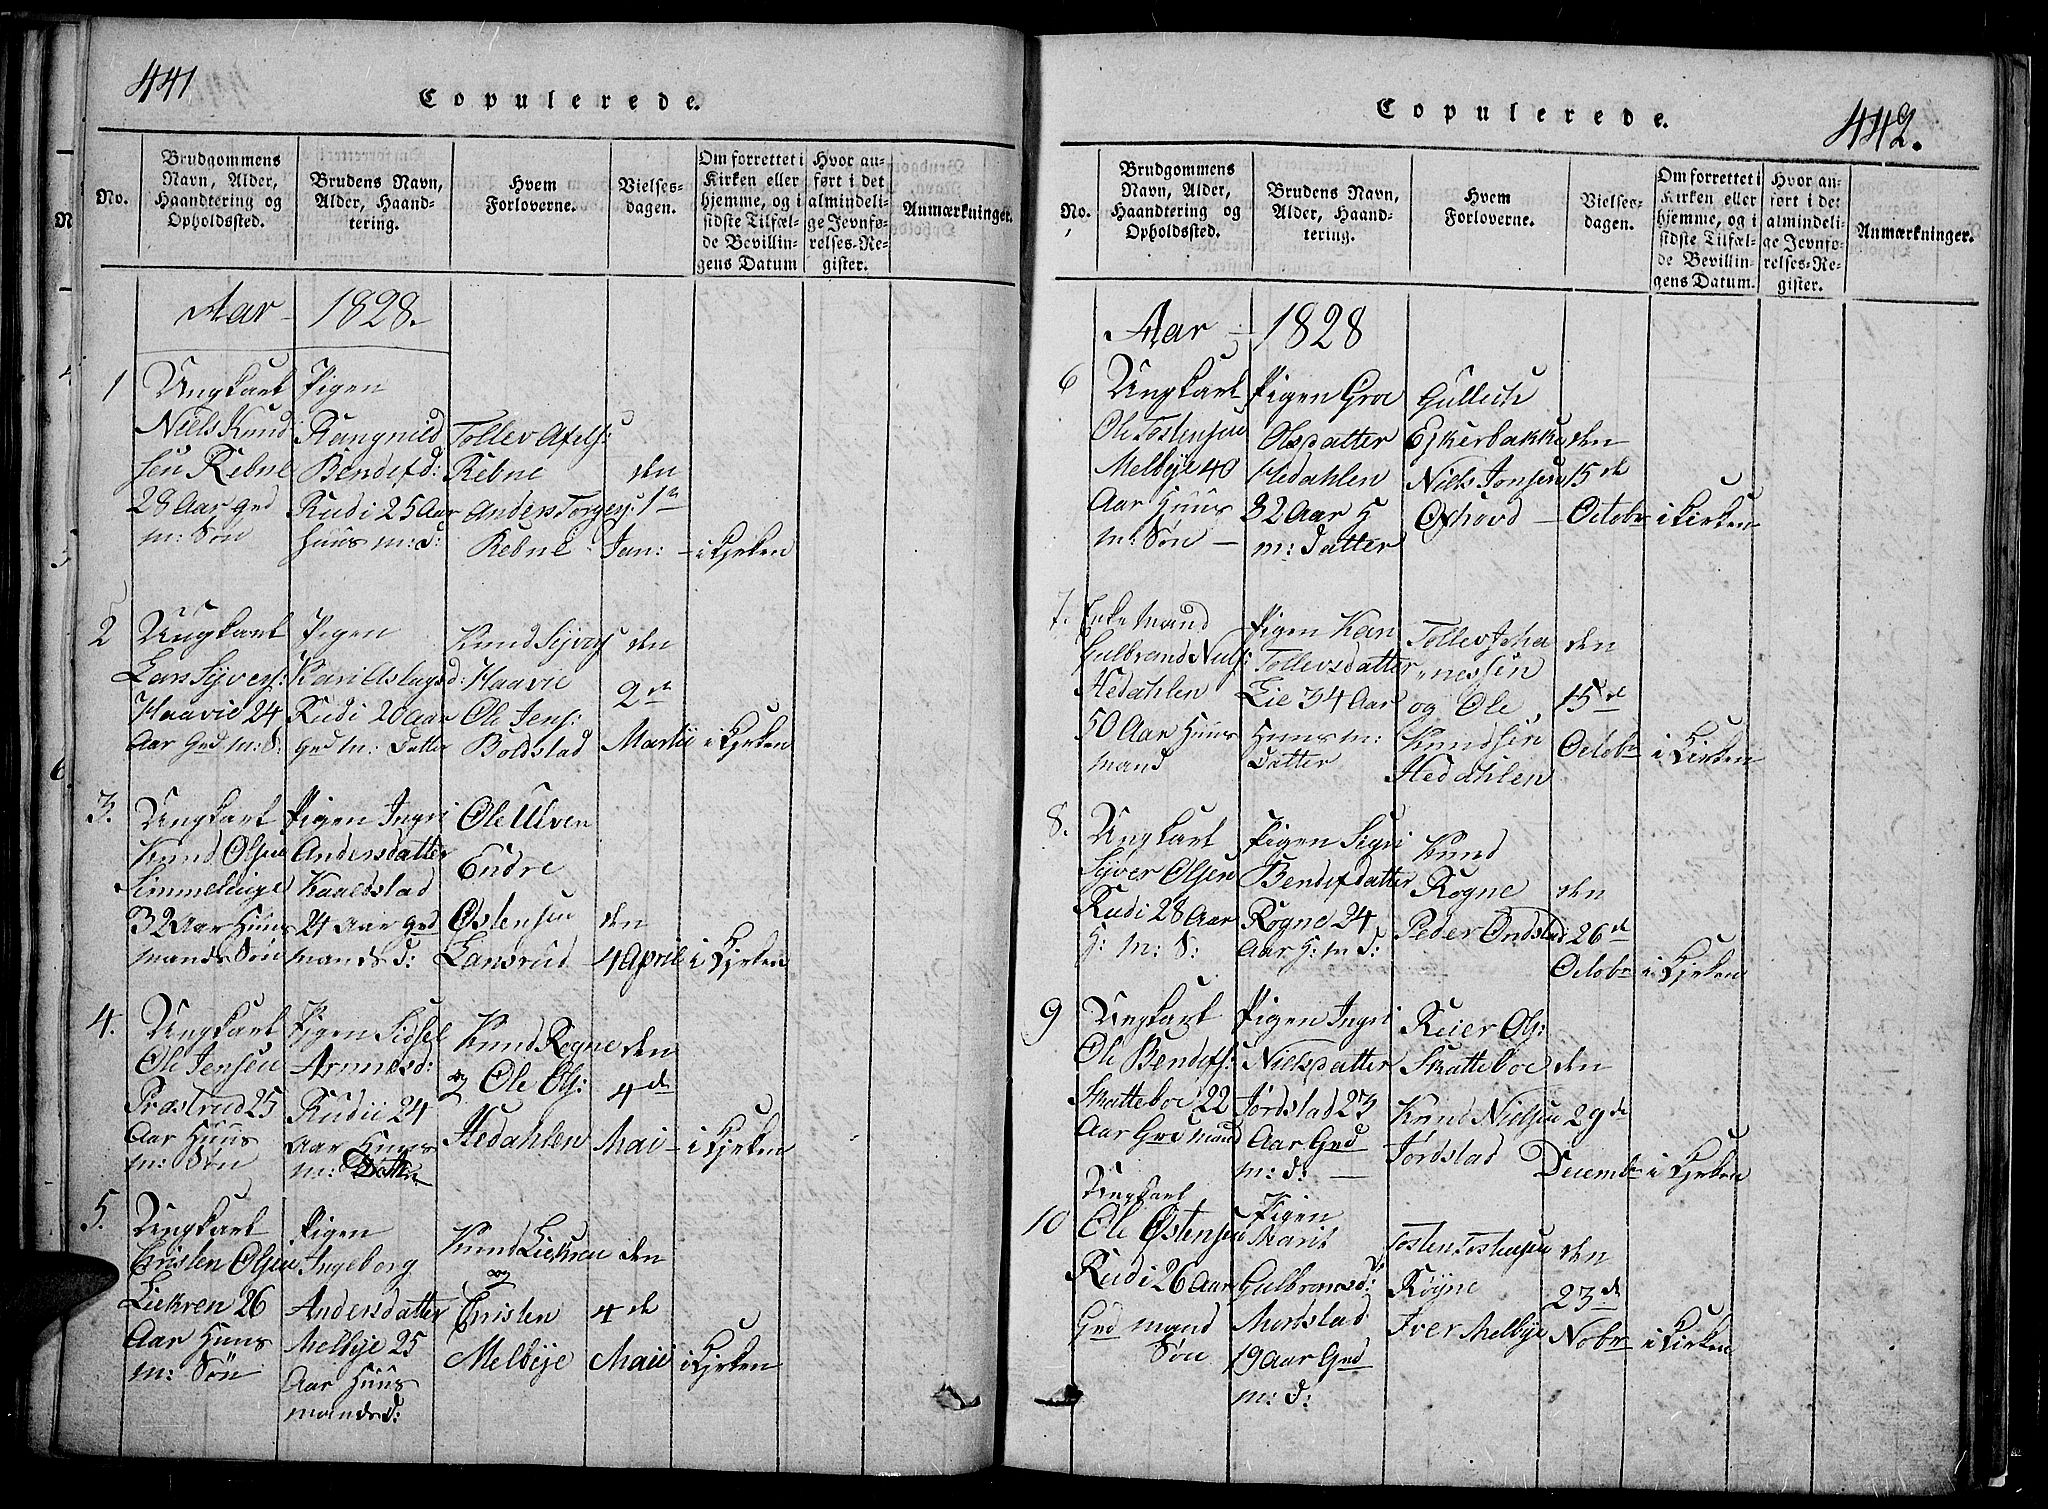 441
Copulerede.
No.
Brudgommens Navn, Alder, Haandtering og Opholdssted.
Brudens Navn, Alder, Haandtering.
Hvem Forloverne.
Vielsesdagen.
Om forrettet i Kirken eller hjemme, og i sidste Tilfælde Bevillingens Datum
Hvor anført i det almindelige Jevnførelses-Register.
Anmærkninger.
Aar - 1828.
1
Ungkarl
Niels Knud
sen Rebne
28 Aar Grd
m: Søn
Pigen
Rangnild
Bendefd:
Rudi 25 Aar
Huus m: d:
Tollev Axels:
Rebne
Anders Torgey:
Rebne
den
1n
Jan:
i Kjrken
2
Ungkarl
Lars Syvers:
Haavie 24
Aar Grd m: S:
Pigen
Kari Aslagsd:
Rudi 20 Aar
Grd m: Datter
Knud Syvers
Haavie
Ole Jens:
Boldstad
den
2de
Martii
i Kjrken
3.
Ungkarl
Knud Olsen
Simmelenge
32 Aar Huus
mands Søn
Pigen Ingri
Andersdatter
Kaaldstad
24 Aar Grd
mands d:
Ole Ulven
Endre
Østensen
Lansrud
den
4 April
i Kjrken
4.
Ungkarl
Ole Jensen
Præstrud 25
Aar Huus
m: Søn
Pigen Sidsel
Arnnesd:
Rudii 24
Aar Huus
m: Datter
Knud Rogne
og Ole Ols:
Hedahlen
den
4de
Mai
i Kjrken
5.
Ungkarl
Cristen Olsen
Liekren 26
Aar Huus
m: Søn
Pigen
Ingeborg
Andersdatter
Melbye 25
Aar Huus
mands d:
Knud Liekren
og
Cristen
Melbye
den
4de
Maii
i Kjrken
442.
Copulerede.
No.
Brudgommens Navn, Alder, Haandtering og Opholdssted.
Brudens Navn, Alder, Haandtering.
Hvem Forloverne.
Vielsesdagen.
Om forrettet i Kirken eller hjemme, og i sidste Tilfælde Bevillingens Datum.
Hvor anført i det almindelige Jevnførelses-Register.
Anmærkninger.
Aar - 1828
6
Ungkarl
Ole Tostensen
Melbye 40
Aar Huus
m: Søn
Pigen Groe
Olsdatter
Hedahlen
32 Aar H
m: datter
Gullech
Eskerbakke
Niels Jonsen
Oxhovd
den
15de
Octobr
i Kirken
7.
Enke Mand
Gulbrand Niels:
Hedahlen
50 Aar Huus
mand
Pigen Kari
Tollevsdatter
Lie 34 Aar
Huus m:
Datter
Tollev Joha
nessen
og Ole
Knudsen
Hedahlen
den
15de
Octobr
i Kirken
8.
Ungkarl
Syver Olsen
Rudi 28 Aar
H: m: S:
Pigen Sigri
Bendefdatter
Rogne 24
Aar H: m d:
Knud
Rogne
Peder Ondstad
den
26de
Octobr
i Kjrken
9
Ungkarl
Ole Bendefs:
Skatteboe 22
Aar Grd mand
Pigen Ingri
Nielsdatter
Jordstad 23
Aar Grd
m: d:
Reier Ols:
Skatteboe
Knud Nielsen
Jordstad
den
29de
Decembr
i Kjrken
10
Ungkarl
Ole Østensen
Rudi 26 Aar
Grd mand
Søn
Pigen
Marit
Gulbransd:
Mordstad
19 Aar Grd
m: d:
Tosten Tostensen
Røyne
Iver Melbye
den
23de
Nobr
i Kirken